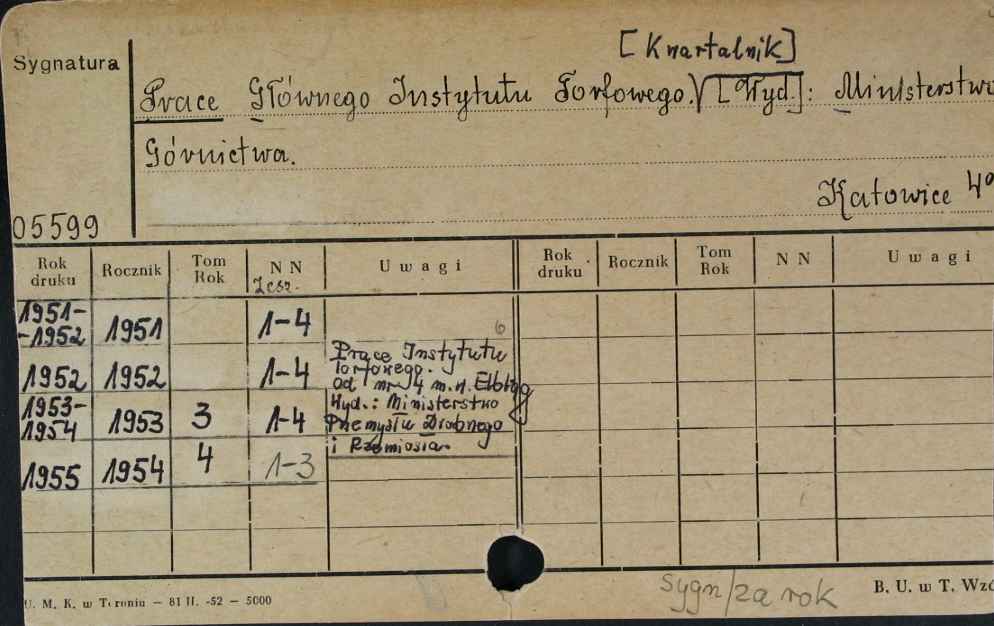 Sygnatura
[Kwartalnik]
Prace Głównego Instytutu Torfowego. [Wyd.]: Ministerstwo
Górnictwa.
Katowice 4°
05599
Rok druku Rocznik Tom Rok NN Zesz. Uwagi Rok druku Rocznik Tom Rok NN Uwagi
1951-
-1952 1951 1-4
6
1952 1952 1-4
1953-
1954 1953 3 1-4
1955 1954 4 1-3
Prace Instytutu
Torfowego.
od nr 4 m.w. Elbląg
Wyd.: Ministerstwo
Przemysłu Drobnego
i Rzemiosła.
sygn/za rok
U. M. K. w Toruniu — 81 II. -52 — 5000
B. U. w T. Wzó